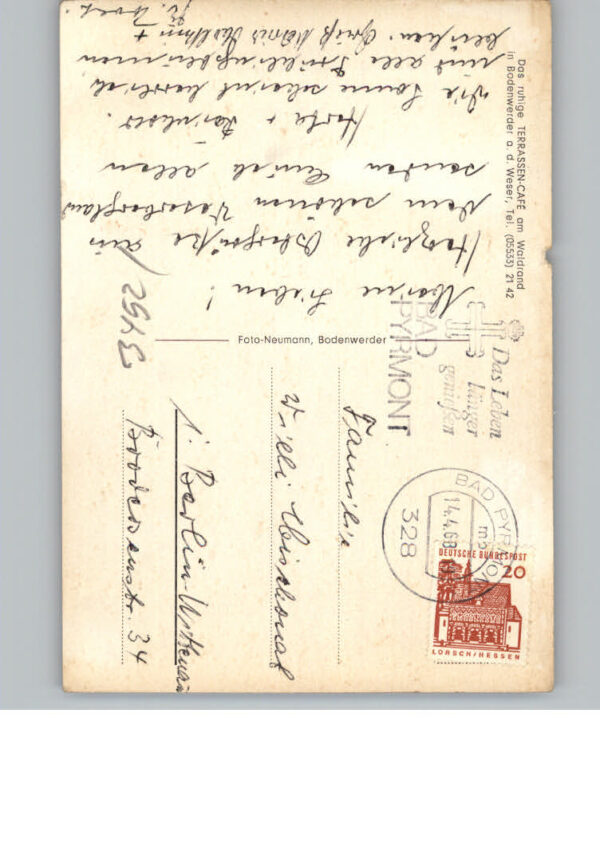 Das ruhige TERRASSEN-CAFÉ am Waldrand
in Bodenwerder a. d. Weser, Tel. (05533) 21 42
Meine Lieben!
Herzliche Ostergrüße aus
dem schönen Weserbergland
senden Euch allen
Herta +
Die Sonne scheint herrlich
und alle
blühen. Gruß
3452
Foto-Neumann, Bodenwerder
BAD
PYRMONT
Das Leben
länger
genießen
BAD PYRMONT
14.4.68
328
DEUTSCHE BUNDESPOST
20
LORSCH/HESSEN
Familie
Willi
1 Berlin-Wittenau
34